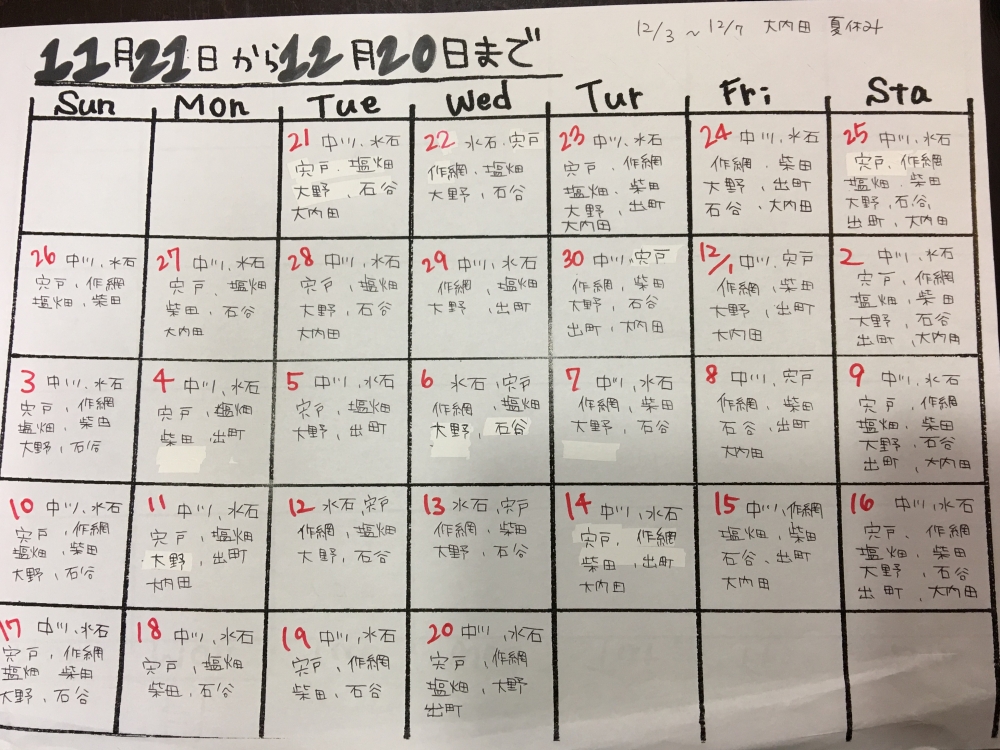 12/3 ~ 12/7 大内田 夏休み
11月21日から12月20日まで
Sun Mon Tue Wed Tur Fri Sta
21 中川、水石
宍戸、塩畑
大野、石谷
大内田
22 水石、宍戸
作網、塩畑
大野、石谷
23 中川、水石
宍戸、作網
塩畑、柴田
大野、出町
大内田
24 中川、水石
作網、柴田
大野、出町
石谷、大内田
25 中川、水石
宍戸、作網
塩畑、柴田
大野、石谷、
出町、大内田
26 中川、水石
宍戸、作網
塩畑、柴田
27 中川、水石
宍戸、塩畑
柴田、石谷
大内田
28 中川、水石
宍戸、塩畑
大野、石谷
大内田
29 中川、水石
作網、塩畑
大野、出町
30 中川、宍戸
作網、柴田
大野、石谷
出町、大内田
12/1 中川、宍戸
作網、柴田
大野、出町
大内田
2 中川、水石
宍戸、作網
塩畑、柴田
大野、石谷
出町、大内田
3 中川、水石
宍戸、作網
塩畑、柴田
大野、石谷
4 中川、水石
宍戸、塩畑
柴田、出町
5 中川、水石
宍戸、塩畑
大野、出町
6 水石、宍戸
作網、塩畑
大野、石谷
7 中川、水石
作網、柴田
大野、石谷
8 中川、宍戸
作網、柴田
石谷、出町
大内田
9 中川、水石
宍戸、作網
塩畑、柴田
大野、石谷
出町、大内田
10 中川、水石
宍戸、作網
塩畑、柴田
大野、石谷
11 中川、水石
宍戸、塩畑
大野、出町
大内田
12 水石、宍戸
作網、塩畑
大野、石谷
13 水石、宍戸
作網、柴田
大野、石谷
14 中川、水石
宍戸、作網
柴田、出町
大内田
15 中川、作網
塩畑、柴田
石谷、出町
大内田
16 中川、水石
宍戸、作網
塩畑、柴田
大野、石谷
出町、大内田
17 中川、水石
宍戸、作網
塩畑 柴田
大野、石谷
18 中川、水石
宍戸、塩畑
柴田、石谷
19 中川、水石
宍戸、作網
柴田、石谷
20 中川、水石
宍戸、作網
塩畑、大野
出町